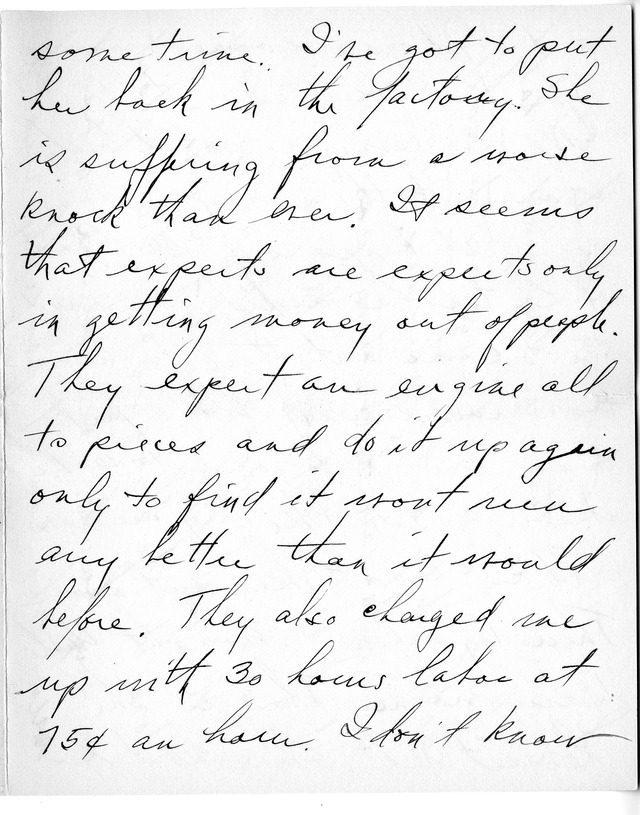 some time. I've got to put
her back in the factory. She
is suffring from a worse
knock than ever. It seems
that experts are experts only
in getting money out of people.
They expert an engine all
to pieces and do it up again
only to find it wont run
any better than it would
before. They also charged me
up with 30 hours labor at
75¢ an hour. I don't know